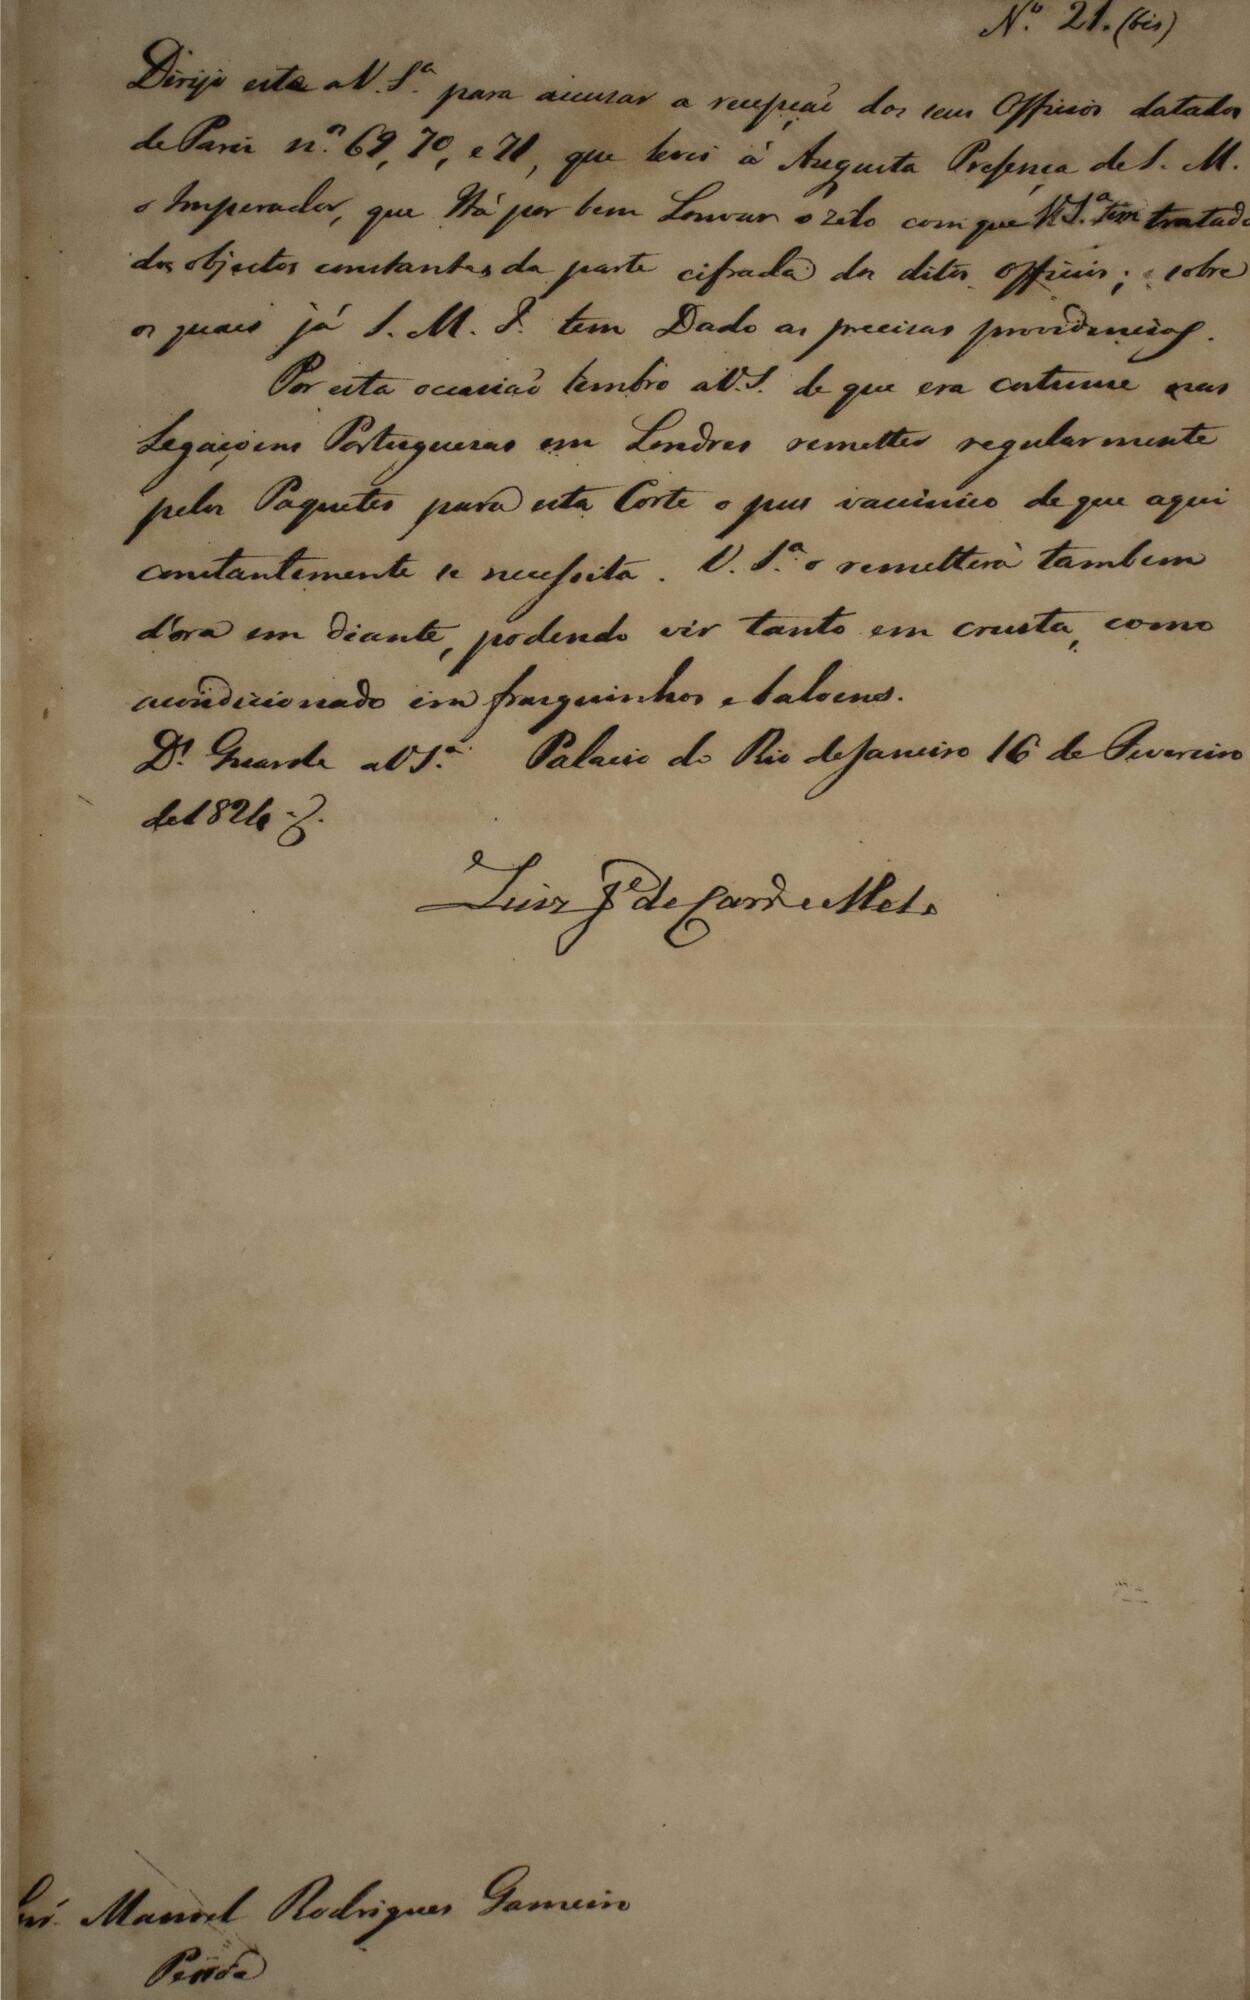 N.º 21. (bis)
Dirijo esta a V. S.ª para accusar a recepção dos seus Officios datados
de Paris n.ºs 69, 70, e 71, que levei á Augusta Presença de S. M.
o Imperador, que Há por bem Louvar o zelo com que V. S.ª tem tratado
dos objectos constantes da parte cifrada dos ditos officios; sobre
os quais já S. M. I. tem Dado as precisas providencias.
Por esta occasião lembro a V. S. de que era costume nas
Legaçoens Portuguesas em Londres remetter regularmente
pelos Paquetes para esta Corte o pus vaccinico de que aqui
constantemente se necessita. V. S.ª o remetterà tambem
d'ora em diante, podendo vir tanto em crusta, como
acondicionado em frasquinhos e baloens.
D.s Guarde a V S.ª Palacio do Rio de Janeiro 16 de Fevereiro
de 1824
Luiz J.e de Carv.o e Mello
Manoel Rodrigues Gameiro
Pessôa